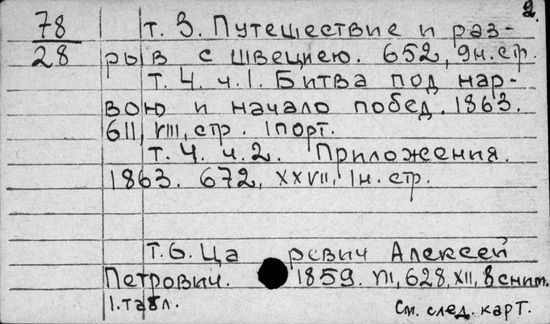 2.
78 т. 3. Путешествие и раз-
28 рыв с Швециею. 652, 9н. стр.
т. 4. ч. 1. Битва под нар-
вою и начало побед. 1863.
611, VIII, стр. 1 порт.
т. 4. ч. 2. Приложения.
1863. 672, XXVII, 1н. стр.
т. 6. Ца ревич Алексей
Петрович. 1859. VI, 628, XII, 8 сним.
1. табл. См. след. карт.